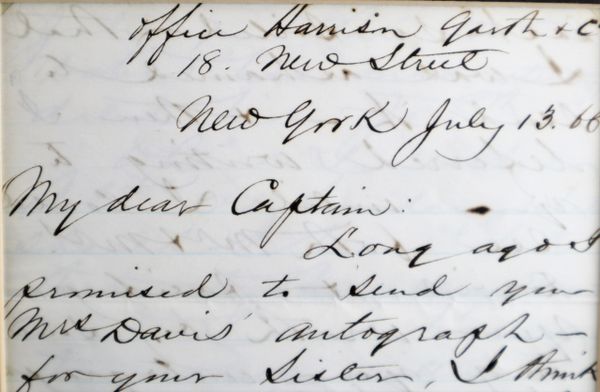 Office Harrison Garth & Co
18. New Street
New York July 13. 66
My dear Captain:
Long ago I
promised to send you
Mrs Davis' autograph —
for your Sister. I think